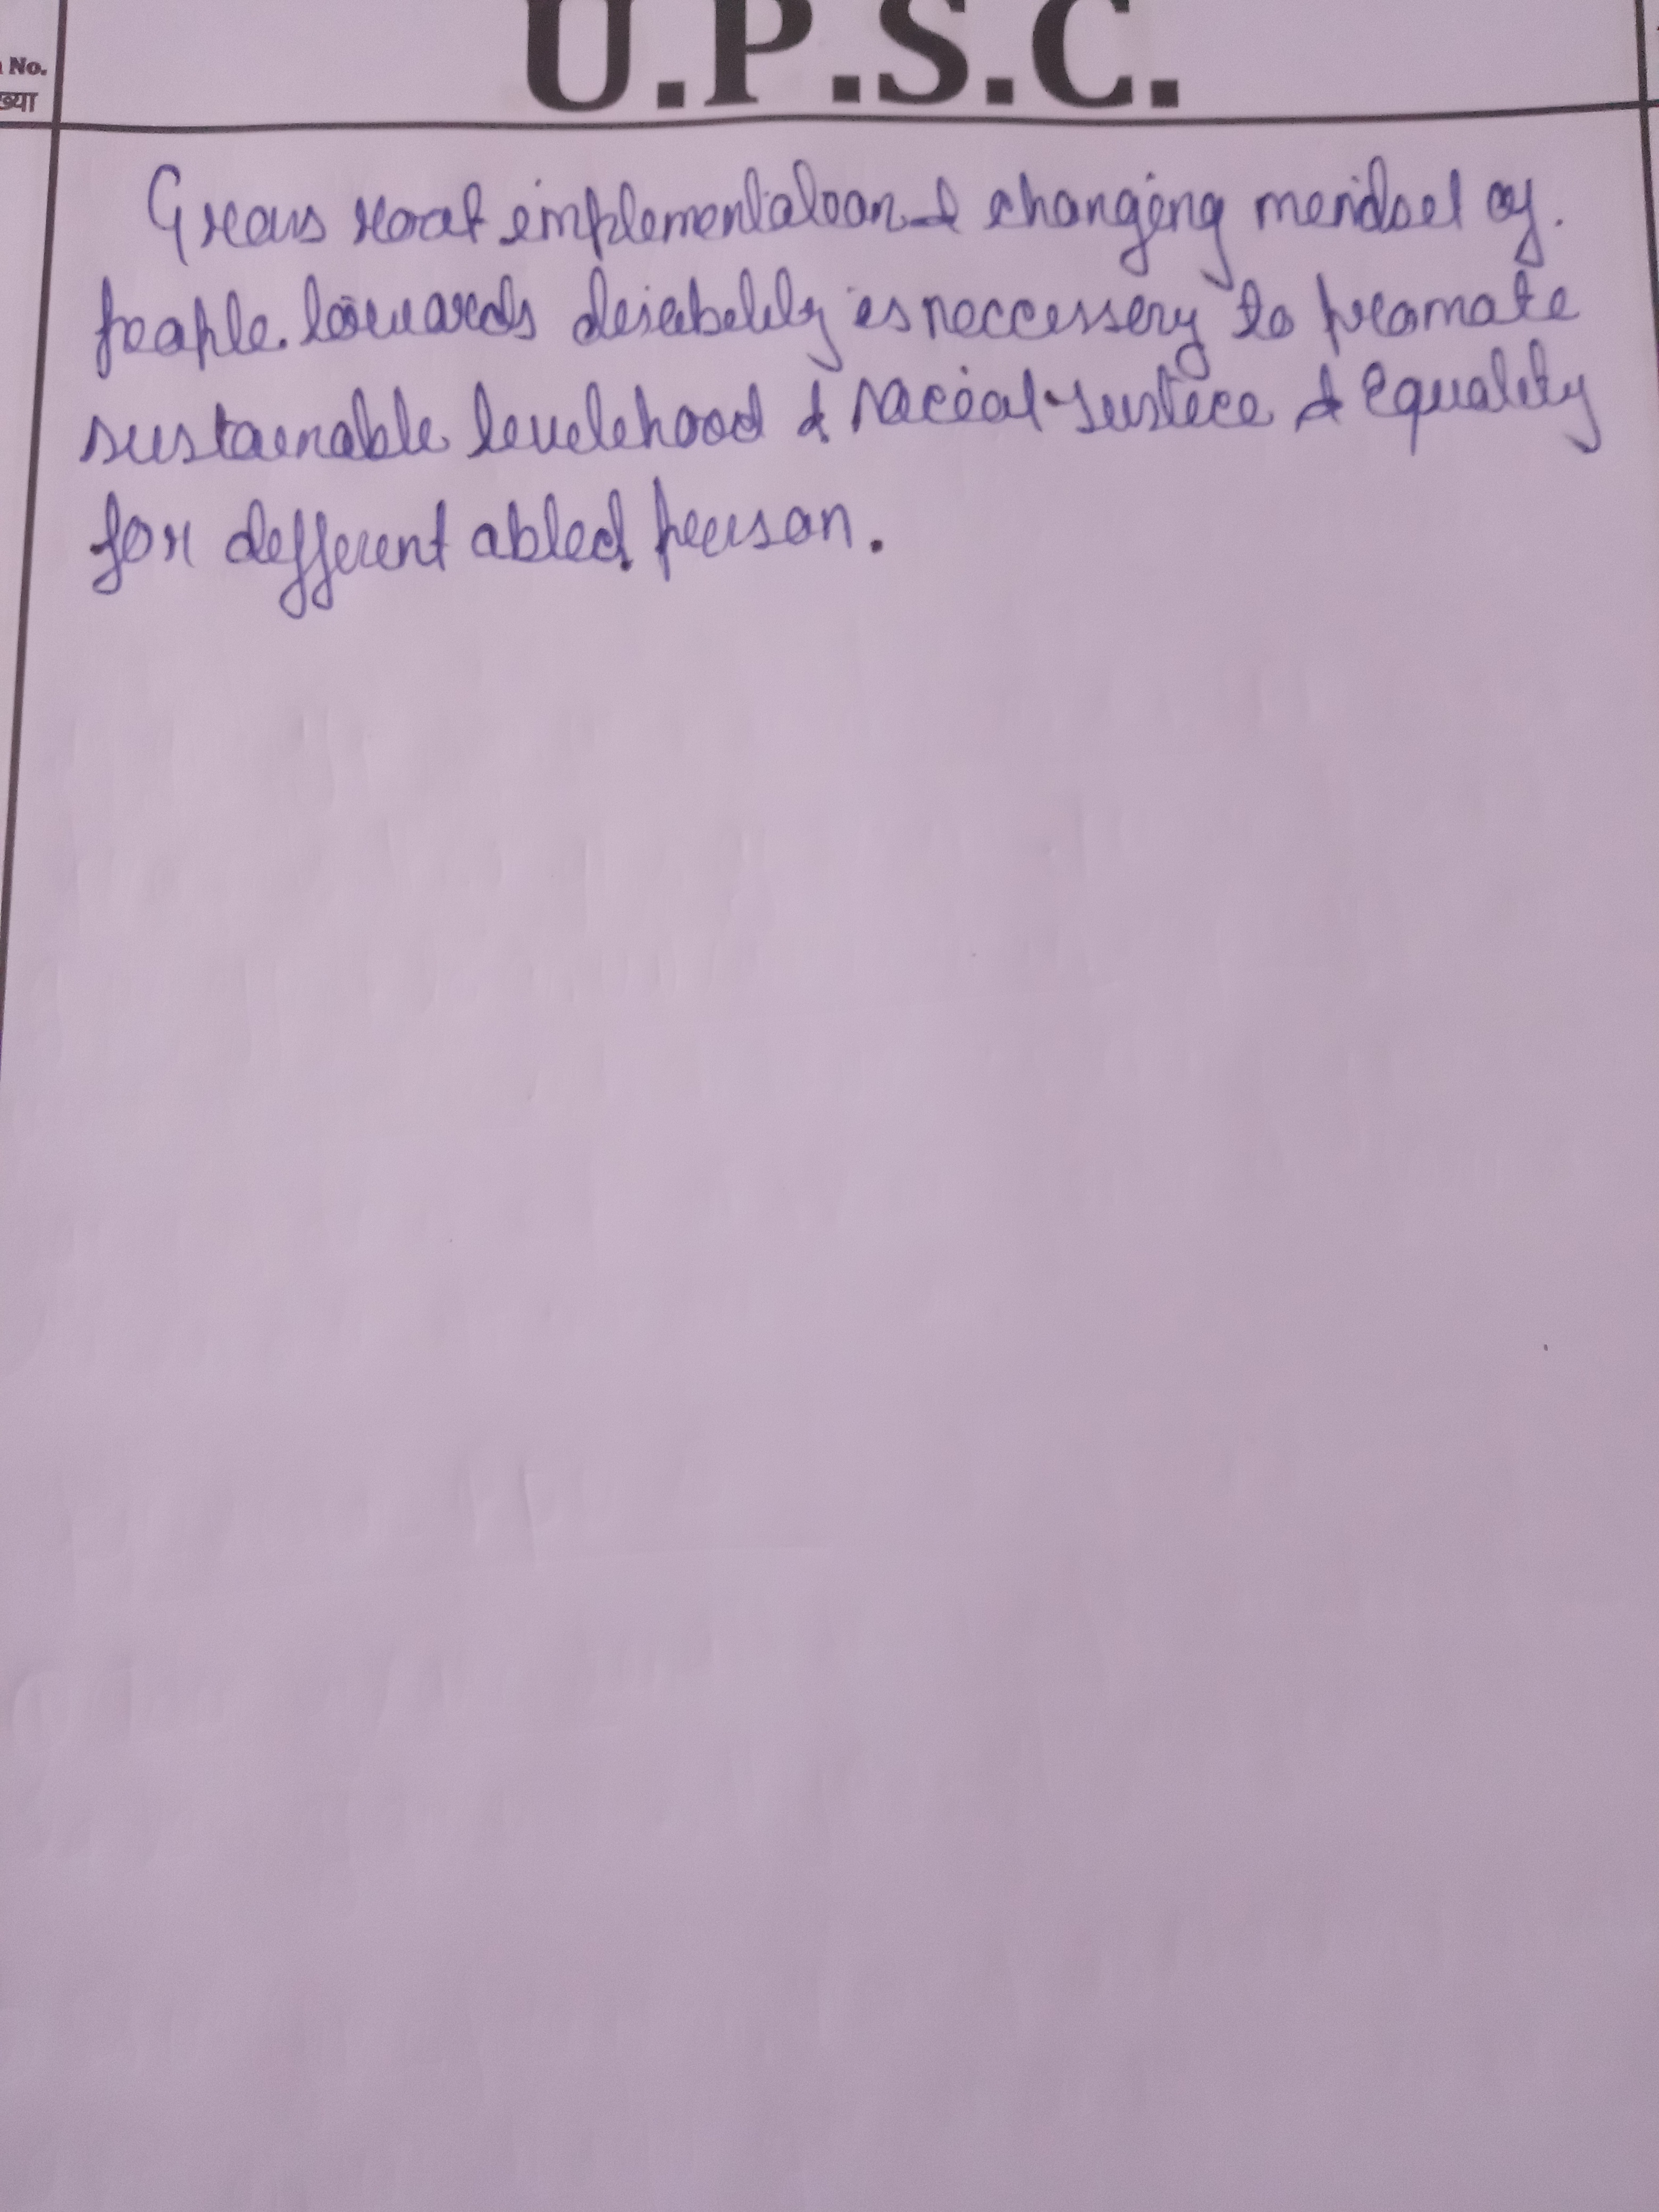 n No.
ख्या
U.P.S.C.
Grass root implementation & changing mindset of
people towards disability is neccessery to promote
sustainable livelihood & social justice & Equality
for different abled person.